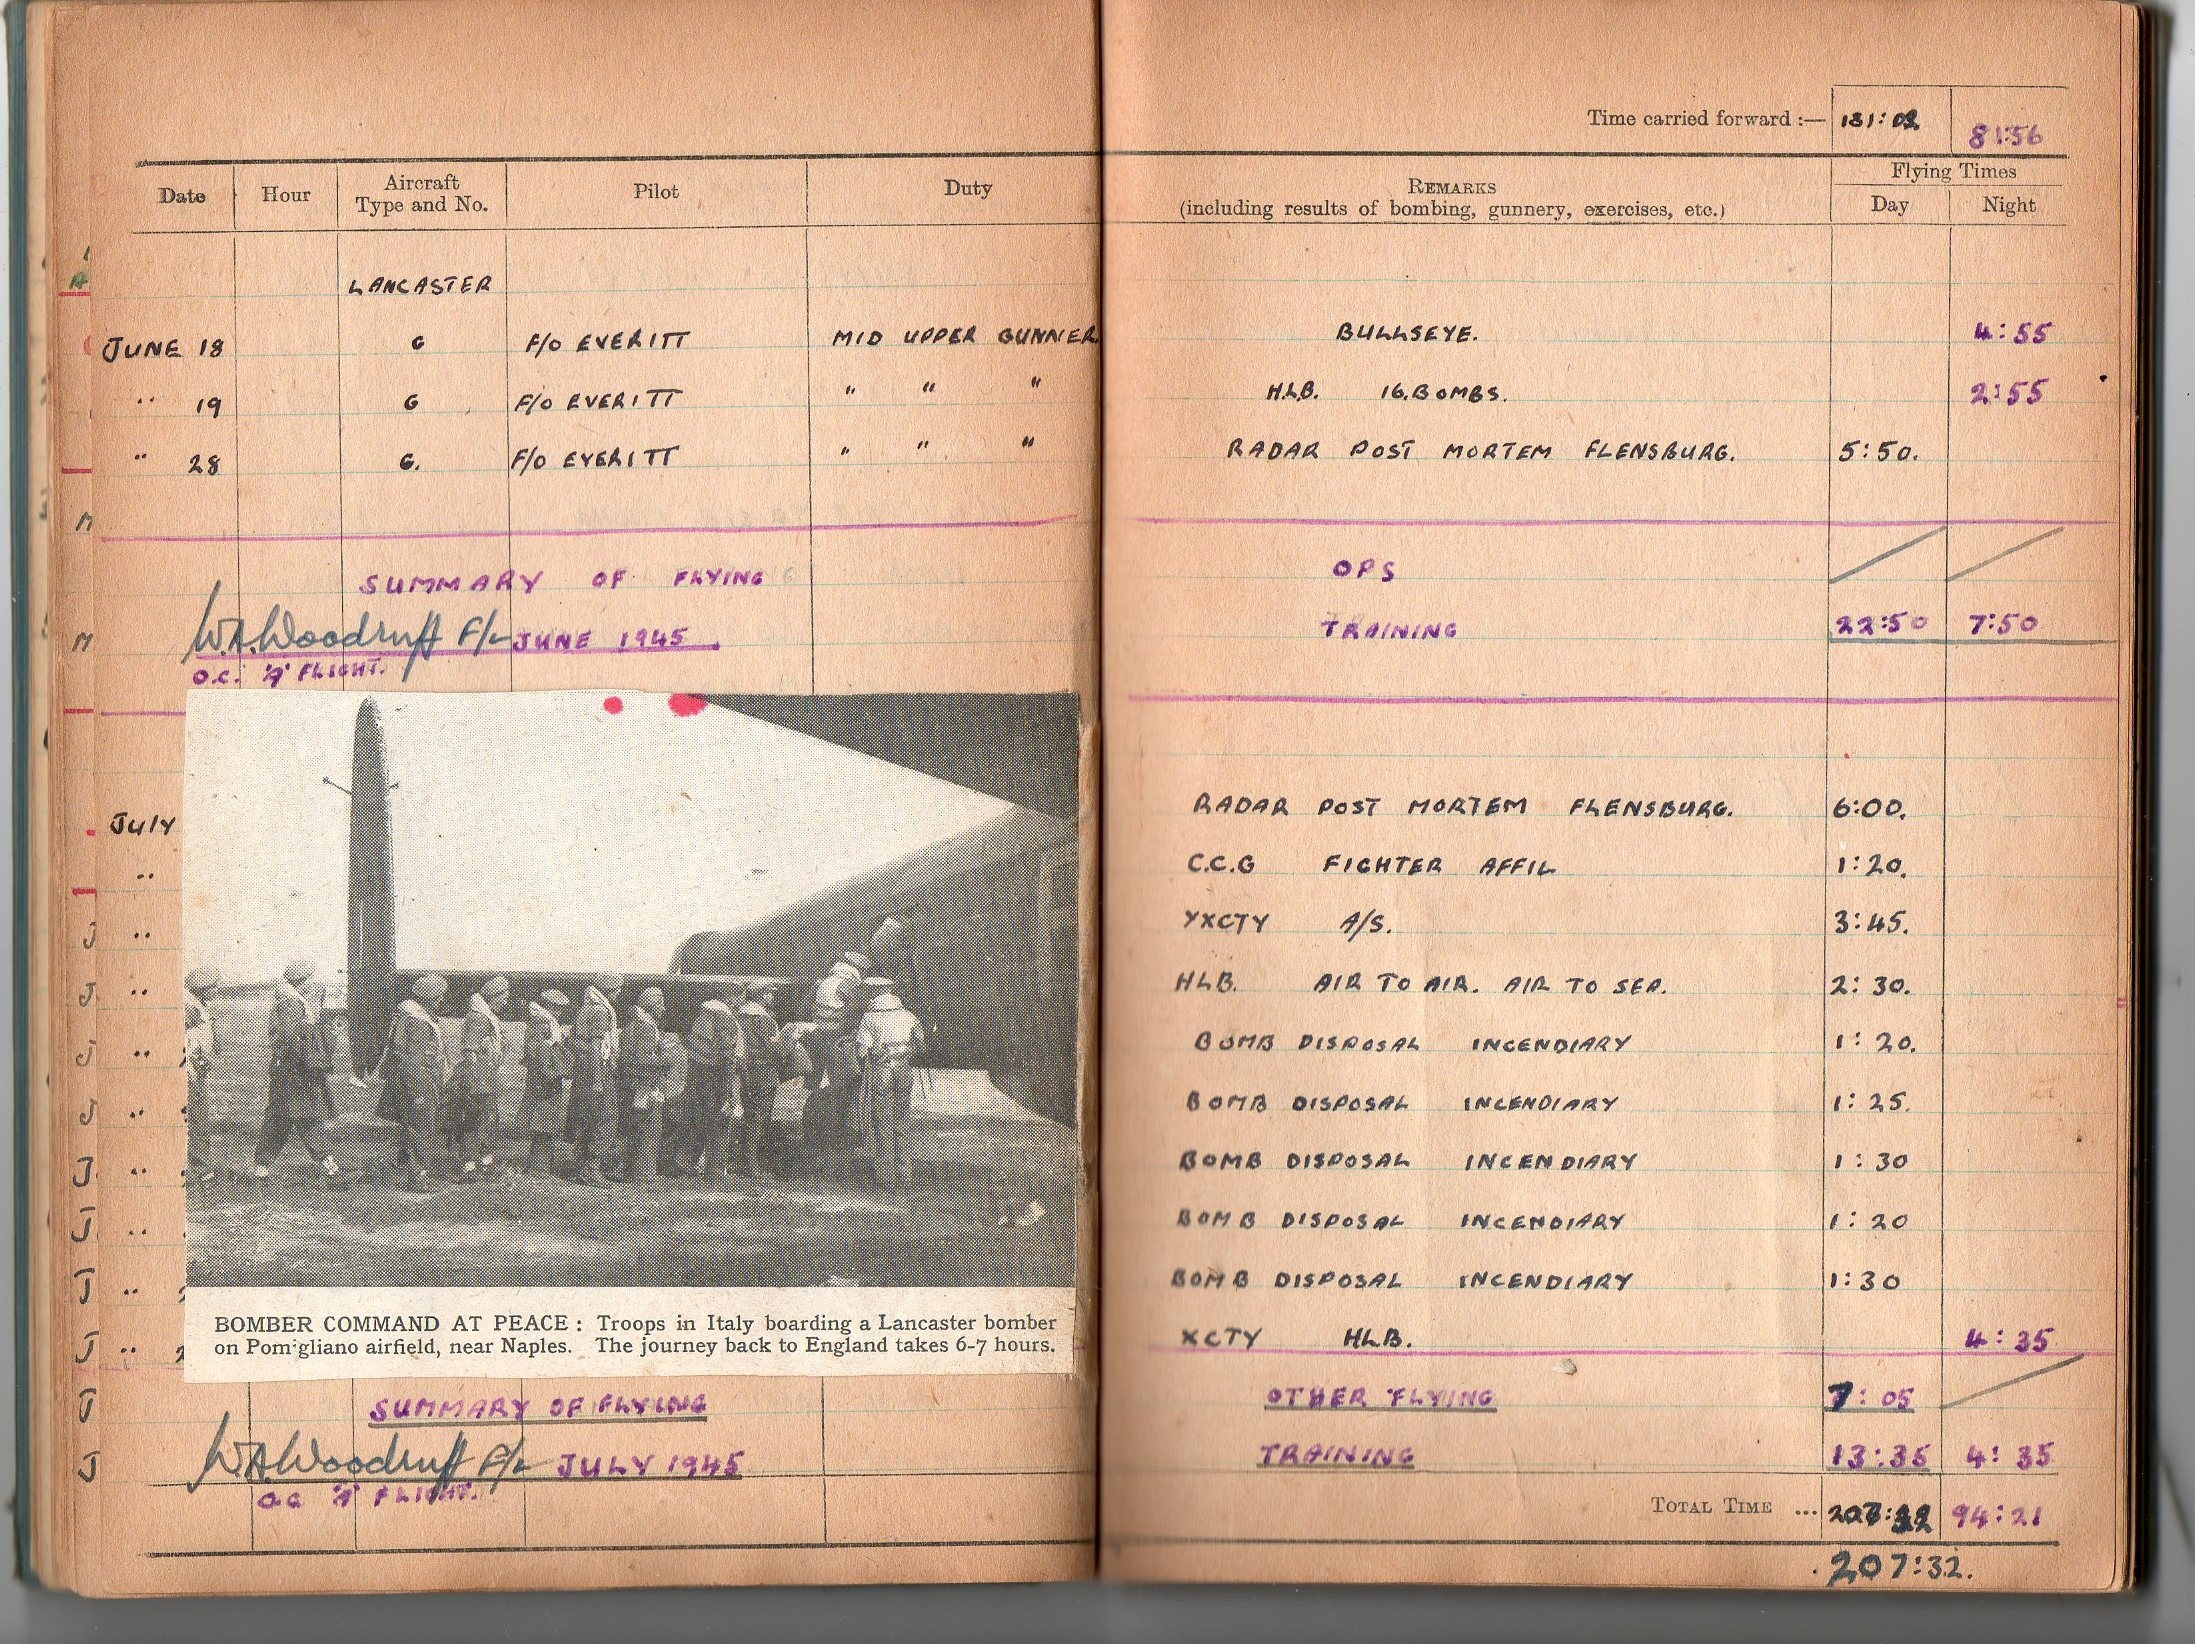 Time carried forward :— 181:02 81:56
Date Hour Aircraft Type and No. Pilot Duty REMARKS (including results of bombing, gunnery, exercises, etc.) Flying Times Day Night
LANCASTER
JUNE 18 G F/O EVERITT MID UPPER GUNNER BULLSEYE. 4:55
" 19 G F/O EVERITT " " " H.L.B. 16.BOMBS. 2:55
" 28 G. F/O EVERITT " " " RADAR POST MORTEM FLENSBURG. 5:50.
SUMMARY OF FLYING OPS
W.A.Woodruff F/L JUNE 1945. TRAINING 22:50 7:50
O.C. 'A' FLIGHT.
JULY RADAR POST MORTEM FLENSBURG. 6:00.
" C.C.G FIGHTER AFFIL 1:20.
" YXCTY A/S. 3:45.
" HLB. AIR TO AIR. AIR TO SEA. 2:30.
" BOMB DISPOSAL INCENDIARY 1:20.
" BOMB DISPOSAL INCENDIARY 1:25.
" BOMB DISPOSAL INCENDIARY 1:30
" BOMB DISPOSAL INCENDIARY 1:20
" BOMB DISPOSAL INCENDIARY 1:30
" XCTY HLB. 4:35
BOMBER COMMAND AT PEACE: Troops in Italy boarding a Lancaster bomber
on Pomigliano airfield, near Naples. The journey back to England takes 6-7 hours.
SUMMARY OF FLYING OTHER FLYING 7:05
W.A.Woodruff F/L JULY 1945 TRAINING 13:35 4:35
O.C 'A' FLIGHT.
TOTAL TIME ... 94:21
207:32.